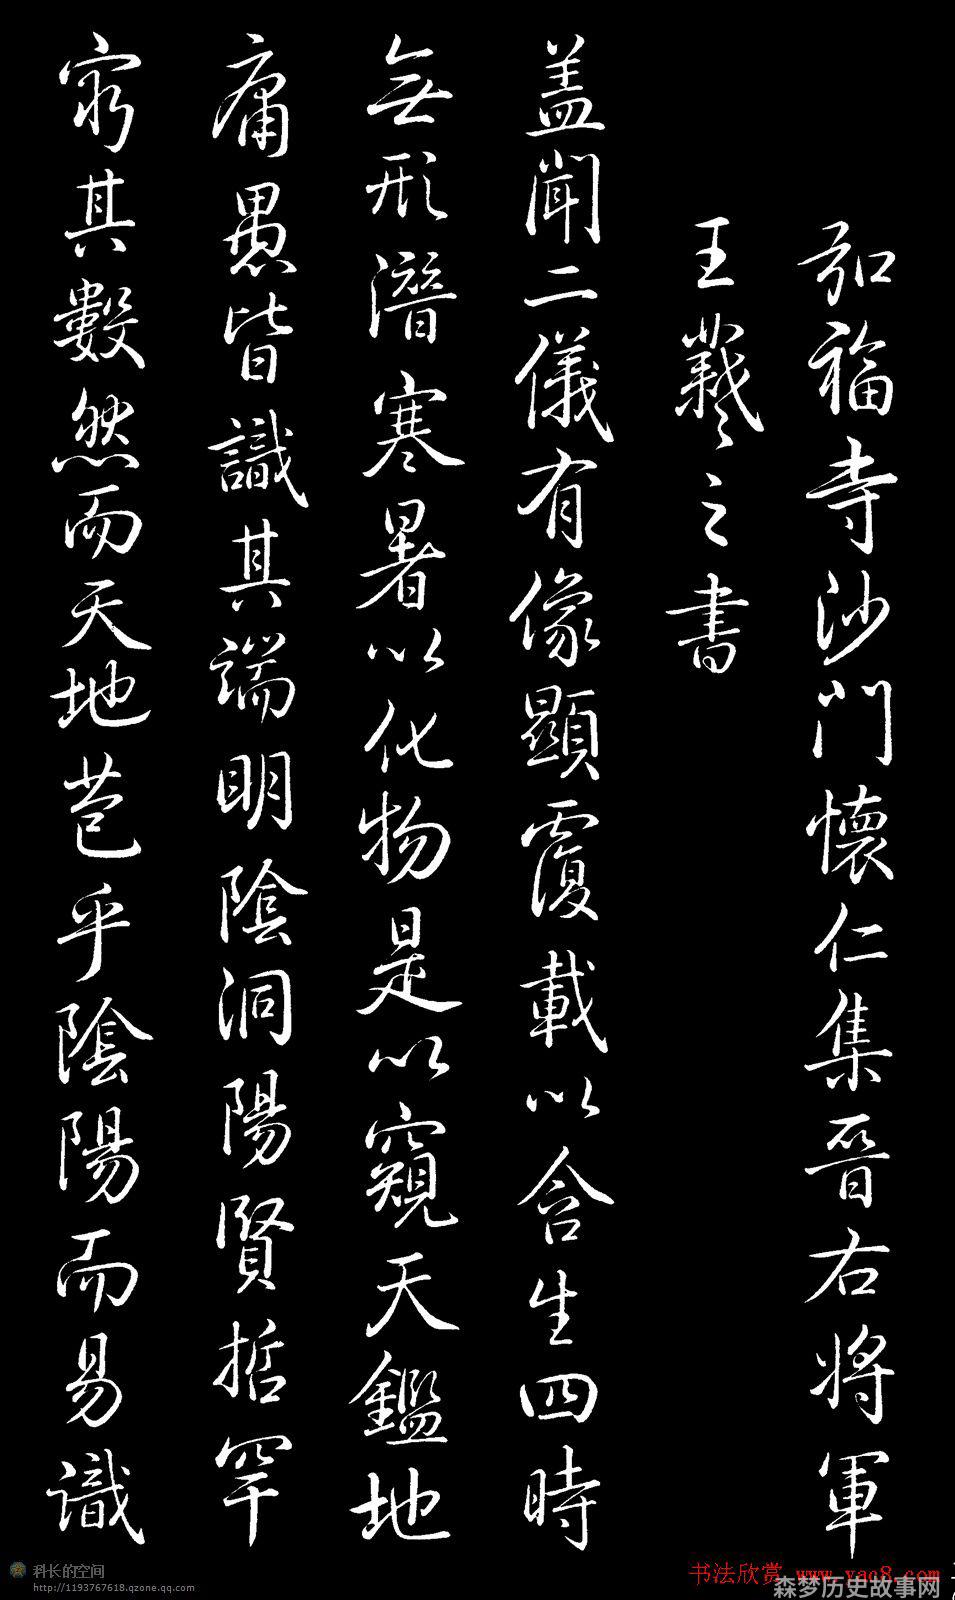 弘福寺沙門懷仁集晉右將軍
王羲之書
盖聞二儀有像顯覆載以含生四時
無形潛寒暑以化物是以窺天鑑地
庸愚皆識其端明陰洞陽賢哲罕
窮其數然而天地苞乎陰陽而易識
科长的空间
http://1193767618.qzone.qq.com
书法欣赏 www.yac8.com
森梦历史故事网